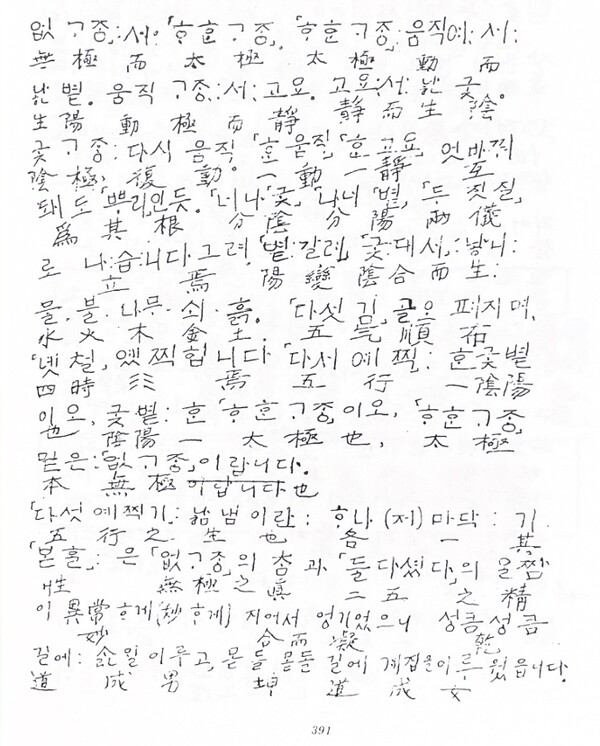 없 ᄀᆞ종:서 「ᄒᆞᆫᄒᆞᆫ ᄀᆞ종」, 「ᄒᆞᆫᄒᆞᆫ ᄀᆞ종」: 움직여: 서:
無 極 而 太 極 太 極 動 而
낳 볕。 움직 ᄀᆞ종:서: 고요。 고요:서: 낳 긎。
生 陽 動 極 而 靜 靜 而 生 陰
긎 ᄀᆞ종: 다시 움직。「ᄒᆞᆫ 움직」 「ᄒᆞᆫ 고요」 엇바꿔
陰 極 復 動。 一 動 一 靜 互
돼 도 「뿌리」인듯。「난 긎」 「난 볕」, 「두 짓」
爲 其 根 分 陰 分 陽 兩 儀
로 나:습:니다 그려.「볕」 갈려「긎」대서,: 낳니:
立 焉 陽 變 陰 合 而 生:
물. 불. 나무. 쇠. 흙. 「다섯 김」 골으 퍼지며,
水 火 木 金 土. 五 氣 順 布
「넷 철」, 옛찍힙니다. 「다서 예찍」: ᄒᆞᆫ 긎볕
四 時 行 焉 五 行 一 陰陽
이오, 긎볕: ᄒᆞᆫ 「ᄒᆞᆫᄒᆞᆫ ᄀᆞ종」이오, 「ᄒᆞᆫᄒᆞᆫ ᄀᆞ종」
也, 陰陽 一 太 極 也, 太 極
믿은:「없 ᄀᆞ종」이랍니다.
本 無 極 이답니다 也
「다섯 예찍기」: 낳냄이란: ᄒᆞ나 (저) 마닥: 기
五 行 之 生 也 各 一 其
「본ᄒᆞᆯ」: 은「없ᄀᆞ종」의 참 과「둘 다섰다」의 알짬
性 無極 之 眞 二 五 之 精
이 異常ᄒᆞ게(妙ᄒᆞ게) 지어서 엉기었으니 성큼성큼
妙 合 而 凝 乾
길에: 숟일 이루고, 몯돌몯돌 길에 계집을 이루 웠읍니다.
道 成 男 坤 道 成 女
391